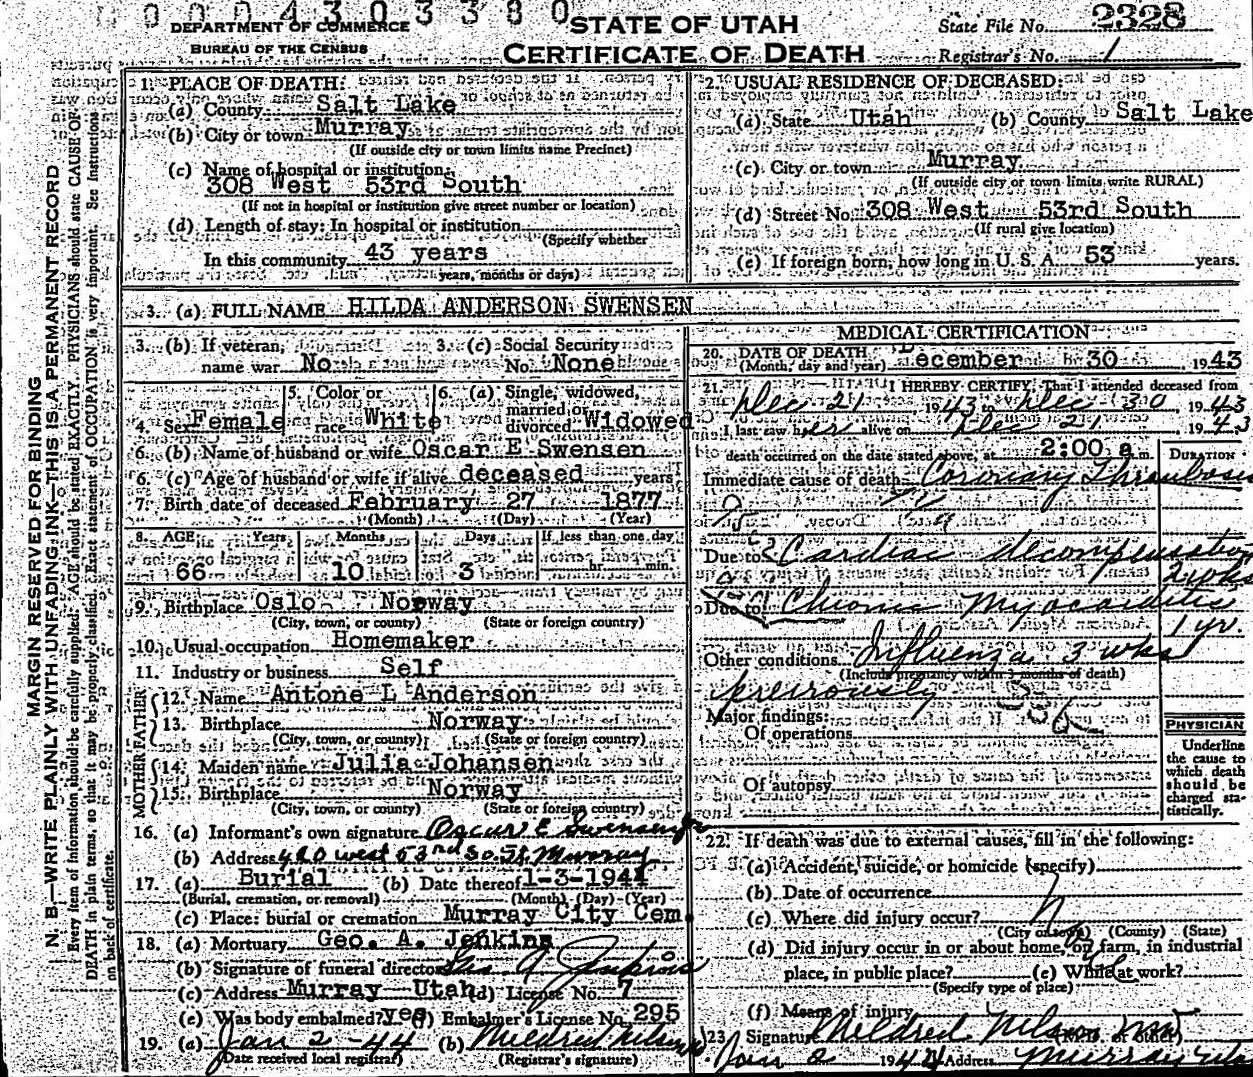 0004303380
DEPARTMENT OF COMMERCE
BUREAU OF THE CENSUS
STATE OF UTAH
CERTIFICATE OF DEATH
State File No. 2328
Registrar's No. 1
MARGIN RESERVED FOR BINDING
N. B.—WRITE PLAINLY WITH UNFADING INK—THIS IS A PERMANENT RECORD
Every item of information should be carefully supplied. AGE should be stated EXACTLY. PHYSICIANS should state CAUSE OF
DEATH in plain terms, so that it may be properly classified. Exact statement of OCCUPATION is very important. See instructions
on back of certificate.
1. PLACE OF DEATH:
(a) County Salt Lake
(b) City or town Murray
(If outside city or town limits name Precinct)
(c) Name of hospital or institution:
308 West 53rd South
(If not in hospital or institution give street number or location)
(d) Length of stay: In hospital or institution
(Specify whether
In this community 43 years
years, months or days)
2. USUAL RESIDENCE OF DECEASED:
(a) State Utah (b) County Salt Lake
(c) City or town Murray
(If outside city or town limits write RURAL)
(d) Street No. 308 West 53rd South
(If rural give location)
(e) If foreign born, how long in U. S. A. 53 years.
3. (a) FULL NAME HILDA ANDERSON SWENSEN
3. (b) If veteran, 3. (c) Social Security
name war No No. None
4. Sex Female 5. Color or race White 6. (a) Single, widowed, married or divorced Widowed
6. (b) Name of husband or wife Oscar E Swensen
6. (c) Age of husband or wife if alive deceased years
7. Birth date of deceased February 27 1877
(Month) (Day) (Year)
8. AGE Years Months Days If less than one day
66 10 3 hr. min.
9. Birthplace Oslo Norway
(City, town, or county) (State or foreign country)
10. Usual occupation Homemaker
11. Industry or business Self
FATHER
12. Name Antone L Anderson
13. Birthplace Norway
(City, town, or county) (State or foreign country)
MOTHER
14. Maiden name Julia Johansen
15. Birthplace Norway
(City, town, or county) (State or foreign country)
16. (a) Informant's own signature Oscar E Swensen Jr
(b) Address 420 west 53rd So. St. Murray
17. (a) Burial (b) Date thereof 1-3-1944
(Burial, cremation, or removal) (Month) (Day) (Year)
(c) Place: burial or cremation Murray City Cem.
18. (a) Mortuary Geo. A. Jenkins
(b) Signature of funeral director Geo A Jenkins
(c) Address Murray Utah (d) License No. 7
(e) Was body embalmed? yes (f) Embalmer's License No. 295
19. (a) Jan 2 -44 (b) Mildred Nelson
(Date received local registrar) (Registrar's signature)
MEDICAL CERTIFICATION
20. DATE OF DEATH December 30 1943
(Month, day and year)
21. I HEREBY CERTIFY, That I attended deceased from
Dec 21 1943 to Dec 30 1943
I last saw her alive on Dec 21 1943
death occurred on the date stated above, at 2:00 a.m. DURATION
Immediate cause of death Coronary Thrombosis
Due to Cardiac decompensation
2 wks
Due to Chronic Myocarditis
1 yr.
Other conditions Influenza 3 wks
(Include pregnancy within 3 months of death)
previously
Major findings:
Of operations
Of autopsy
PHYSICIAN
Underline
the cause to
which death
should be
charged sta-
tistically.
22. If death was due to external causes, fill in the following:
(a) Accident, suicide, or homicide (specify)
(b) Date of occurrence
(c) Where did injury occur?
(City or town) (County) (State)
(d) Did injury occur in or about home, on farm, in industrial
place, in public place? (e) While at work?
(Specify type of place)
(f) Means of injury
23. Signature Mildred Nelson M.D. (M.D. or other)
Jan 2 1944 Address Murray Utah